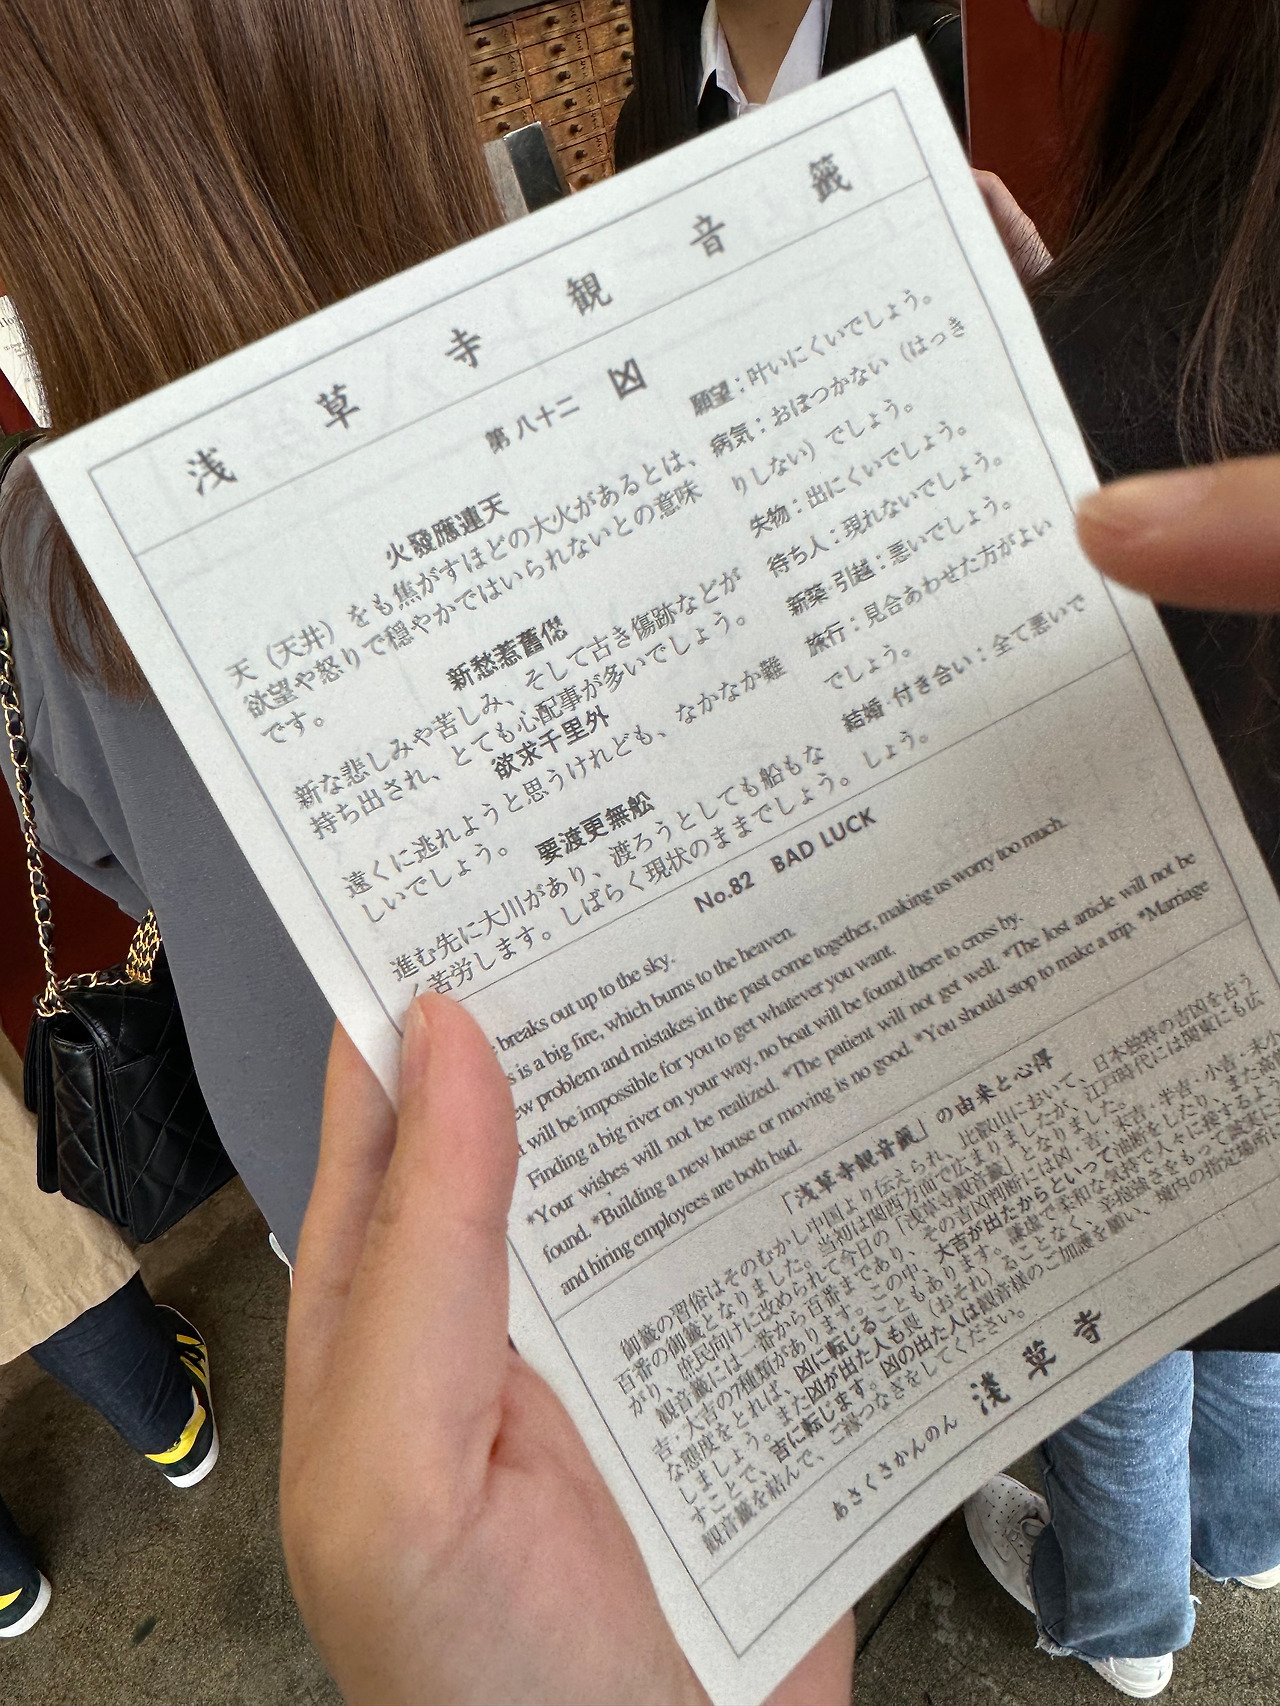 浅草寺観音籤
第八十二 凶
火發應連天
天（天井）をも焦がすほどの大火があるとは、
欲望や怒りで穏やかではいられないとの意味
です。
新愁惹舊愆
新な悲しみや苦しみ、そして古き傷跡などが
持ち出され、とても心配事が多いでしょう。
欲求千里外
遠くに逃れようと思うけれども、なかなか難
しいでしょう。
要渡更無舩
進む先に大川があり、渡ろうとしても船もな
く苦労します。しばらく現状のままでしょう。
願望：叶いにくいでしょう。
病気：おぼつかない（はっき
りしない）でしょう。
失物：出にくいでしょう。
待ち人：現れないでしょう。
新築・引越：悪いでしょう。
旅行：見合わせた方がよい
でしょう。
結婚・付き合い：全て悪いで
しょう。
No.82 BAD LUCK
breaks out up to the sky.
is a big fire, which burns to the heaven.
problem and mistakes in the past come together, making us worry too much.
will be impossible for you to get whatever you want.
Finding a big river on your way, no boat will be found there to cross by.
*Your wishes will not be realized. *The patient will not get well. *The lost article will not be
found. *Building a new house or moving is no good. *You should stop to make a trip. *Marriage
and hiring employees are both bad.
「浅草寺観音籤」の由来と心得
御籤の習俗はそのむかし中国より伝えられ、比叡山において、日本独特の吉凶を占う
百番の御籤となりました。当初は関西方面で広まりましたが、江戸時代には関東にも広
がり、庶民向けに改められて今日の「浅草寺観音籤」となりました。
観音籤には一番から百番まであり、その吉凶判断には凶・吉・末吉・半吉・小吉・末小
吉・大吉の7種類があります。この中、大吉が出たからといって油断をしたり、また高慢
な態度をとれば、凶に転じることもあります。謙虚で柔和な気持で人々に接するように
しましょう。また凶が出た人も畏（おそれ）ることなく、辛抱強さをもって誠実に
すことで、吉に転じます。凶の出た人は観音様のご加護を願い、境内の指定場所に
観音籤を結んで、ご縁つなぎをしてください。
あさくさかんのん 浅草寺